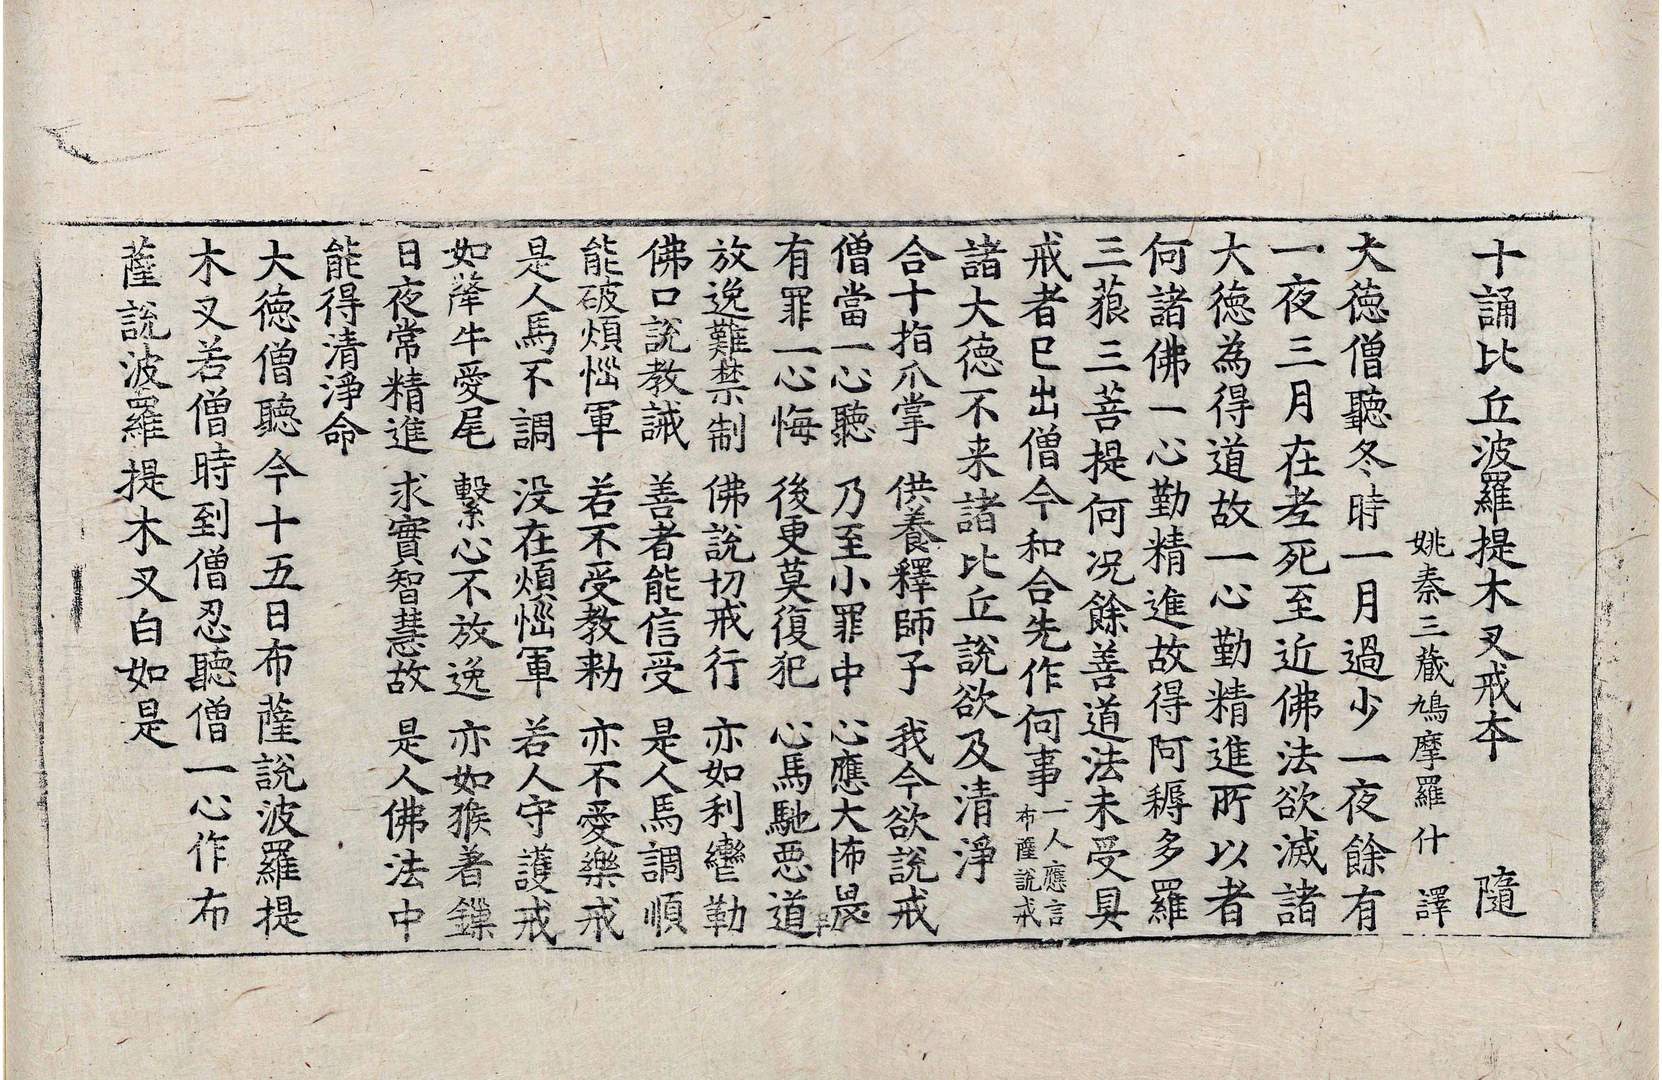 十誦比丘波羅提木叉戒本 隨
姚秦三藏鳩摩羅什 譯
大德僧聽冬時一月過少一夜餘有
一夜三月在老死至近佛法欲滅諸
大德為得道故一心勤精進所以者
何諸佛一心勤精進故得阿耨多羅
三藐三菩提何況餘善道法未受具
戒者已出僧今和合先作何事
一人應言
布薩說戒
諸大德不来諸比丘說欲及清淨
合十指爪掌 供養釋師子 我今欲說戒
僧當一心聽 乃至小罪中 心應大怖畏
有罪一心悔 後更莫復犯 心馬馳惡道
放逸難禁制 佛說切戒行 亦如利轡勒
佛口說教誡 善者能信受 是人馬調順
能破煩惱軍 若不受教勑 亦不愛樂戒
是人馬不調 没在煩惱軍 若人守護戒
如犛牛愛尾 繫心不放逸 亦如猴著鏁
日夜常精進 求實智慧故 是人佛法中
能得清淨命
大德僧聽今十五日布薩說波羅提
木叉若僧時到僧忍聽僧一心作布
薩說波羅提木叉白如是